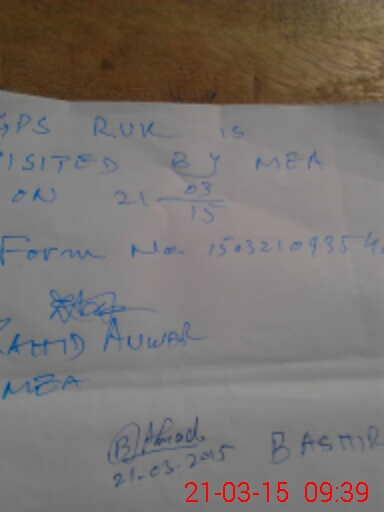 GPS RUK is
VISITED BY MEA
ON 21 03
15
Form No 15032109354
AHID ANWAR
MEA
B Ahmad
21-03-2015 BASHIR
21-03-15 09:39